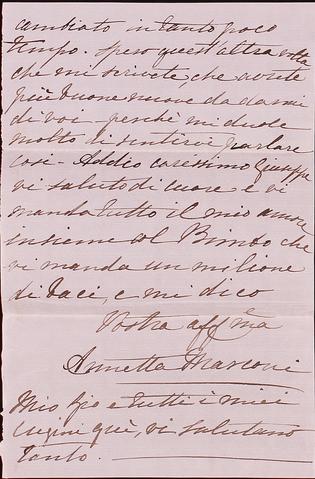 cambiato in tanto poco
tempo. Spero quest'altra volta
che mi scrivete, che avrete
più buone nuove da darmi
di voi perché mi duole
molto di sentirvi parlare
così - Addio carissimo Giuseppe
vi saluto di cuore e vi
manda tutto il mio amore
insieme al Bimbo che
vi manda un milione
di baci, e mi dico
Vostra aff ma
Annetta Marconi
Mio e tutti i miei
cugini quì, vi salutano
tanto.